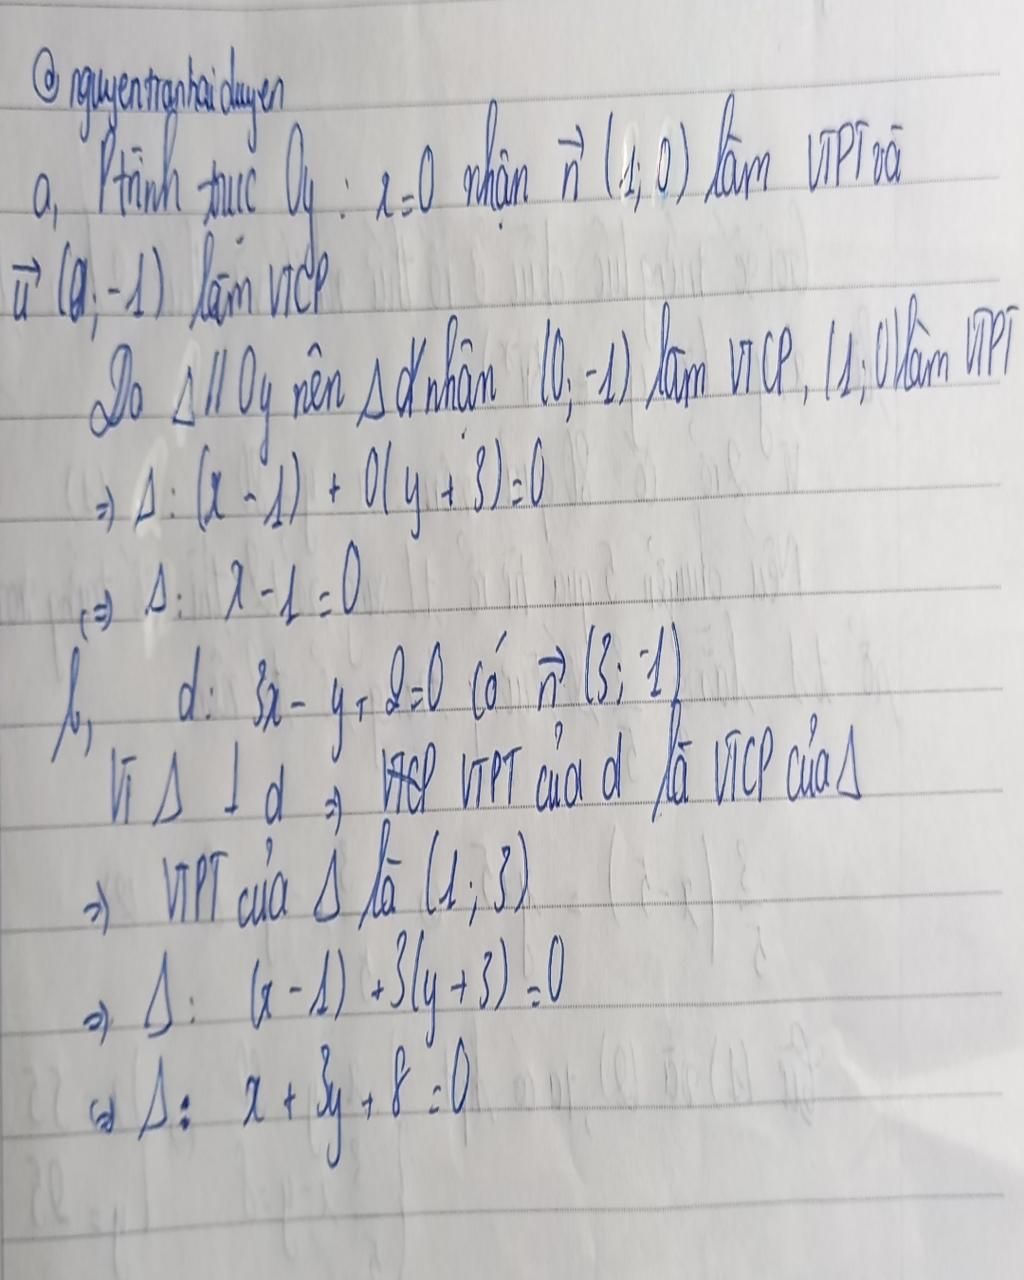 @ nguyentranhaiduyen
a, Ptrình trục Oy : x=0 nhận n⃗ (1; 0) làm VTPT và
u⃗ (0; -1) làm VTCP
Do Δ // Oy nên Δ nhận (0; -1) làm VTCP, (1; 0) làm VTPT
=> Δ: (x - 1) + 0(y + 3)=0
(=) Δ: x - 1 = 0
b, d: 3x - y + 2=0 có n⃗ (3; -1)
Vì Δ ⊥ d => VTCP VTPT của d là VTCP của Δ
=> VTPT của Δ là (1; 3)
=> Δ: (x - 1) + 3(y + 3) = 0
<=> Δ: x + 3y + 8 = 0